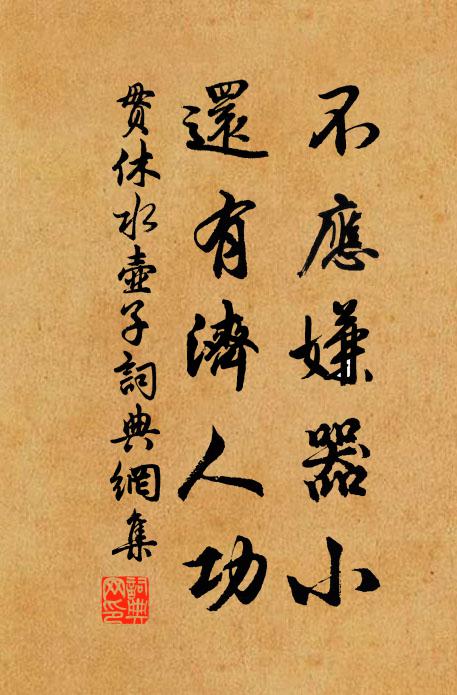 不應嫌器小
還有濟人功
貫休水壺子詞典網集
詞典網印